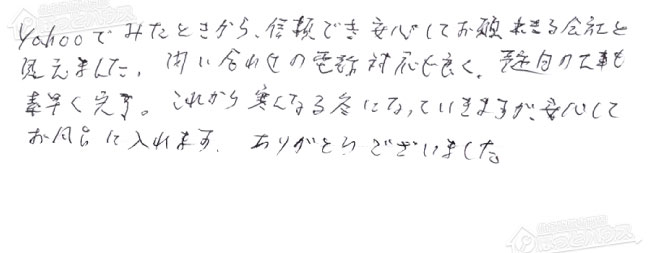 Yahooでみたときから、信頼でき安心してお願い出来る会社と
見えました。問い合わせの電話対応も良く、当日の工事も
素早く完了。これから寒くなる冬になっていきますが、安心して
お風呂に入れます。ありがとうございました。